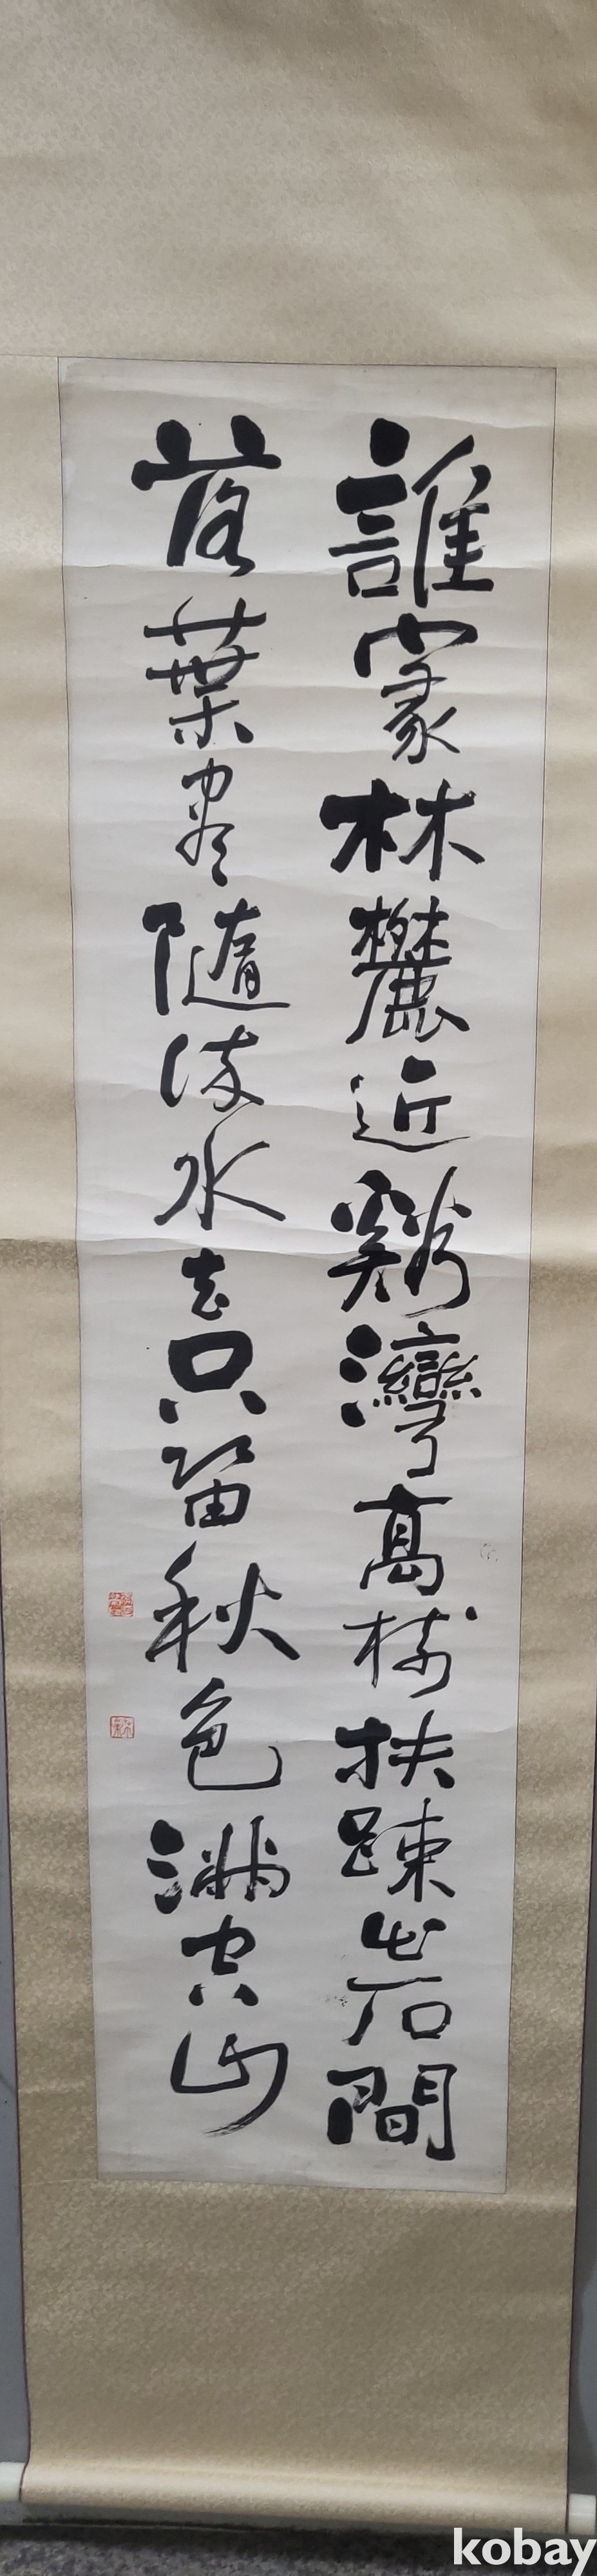 誰家林麓近谿灣高樹扶踈出石間
落葉尽隨流水去只留秋色滿空山
kobay